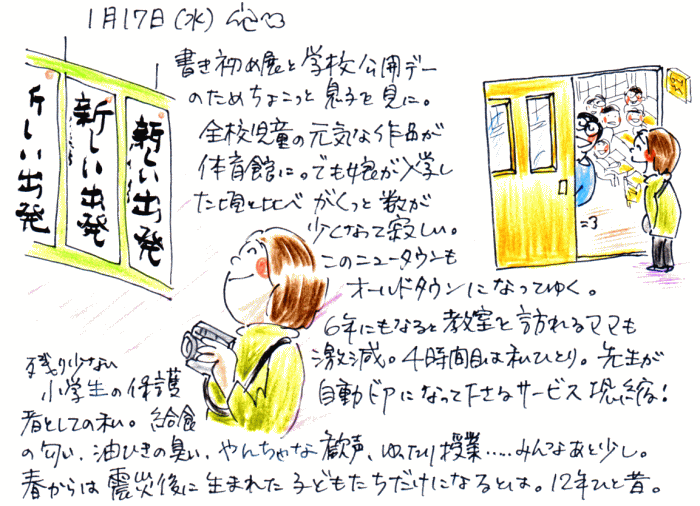 1月17日(水)
書き初め展と学校公開デー
のためちょこっと息子を見に。
全校児童の元気な作品が
体育館に。でも娘が入学し
た頃と比べ がくっと数が
少くなって寂しい。
このニュータウンも
オールドタウンになってゆく。
6年にもなると教室を訪れるママも
激減。4時間目は私ひとり。先生が
自動ドアになって下さるサービス
残り少ない
小学生の保護
者としての私。給食
の匂い、油ひきの臭い、やんちゃな歓声、ゆったり授業……みんなあと少し。
春からは震災後に生まれた子どもたちだけになるとは。12年ひと昔。
新しい出発
新しい出発
しい出発